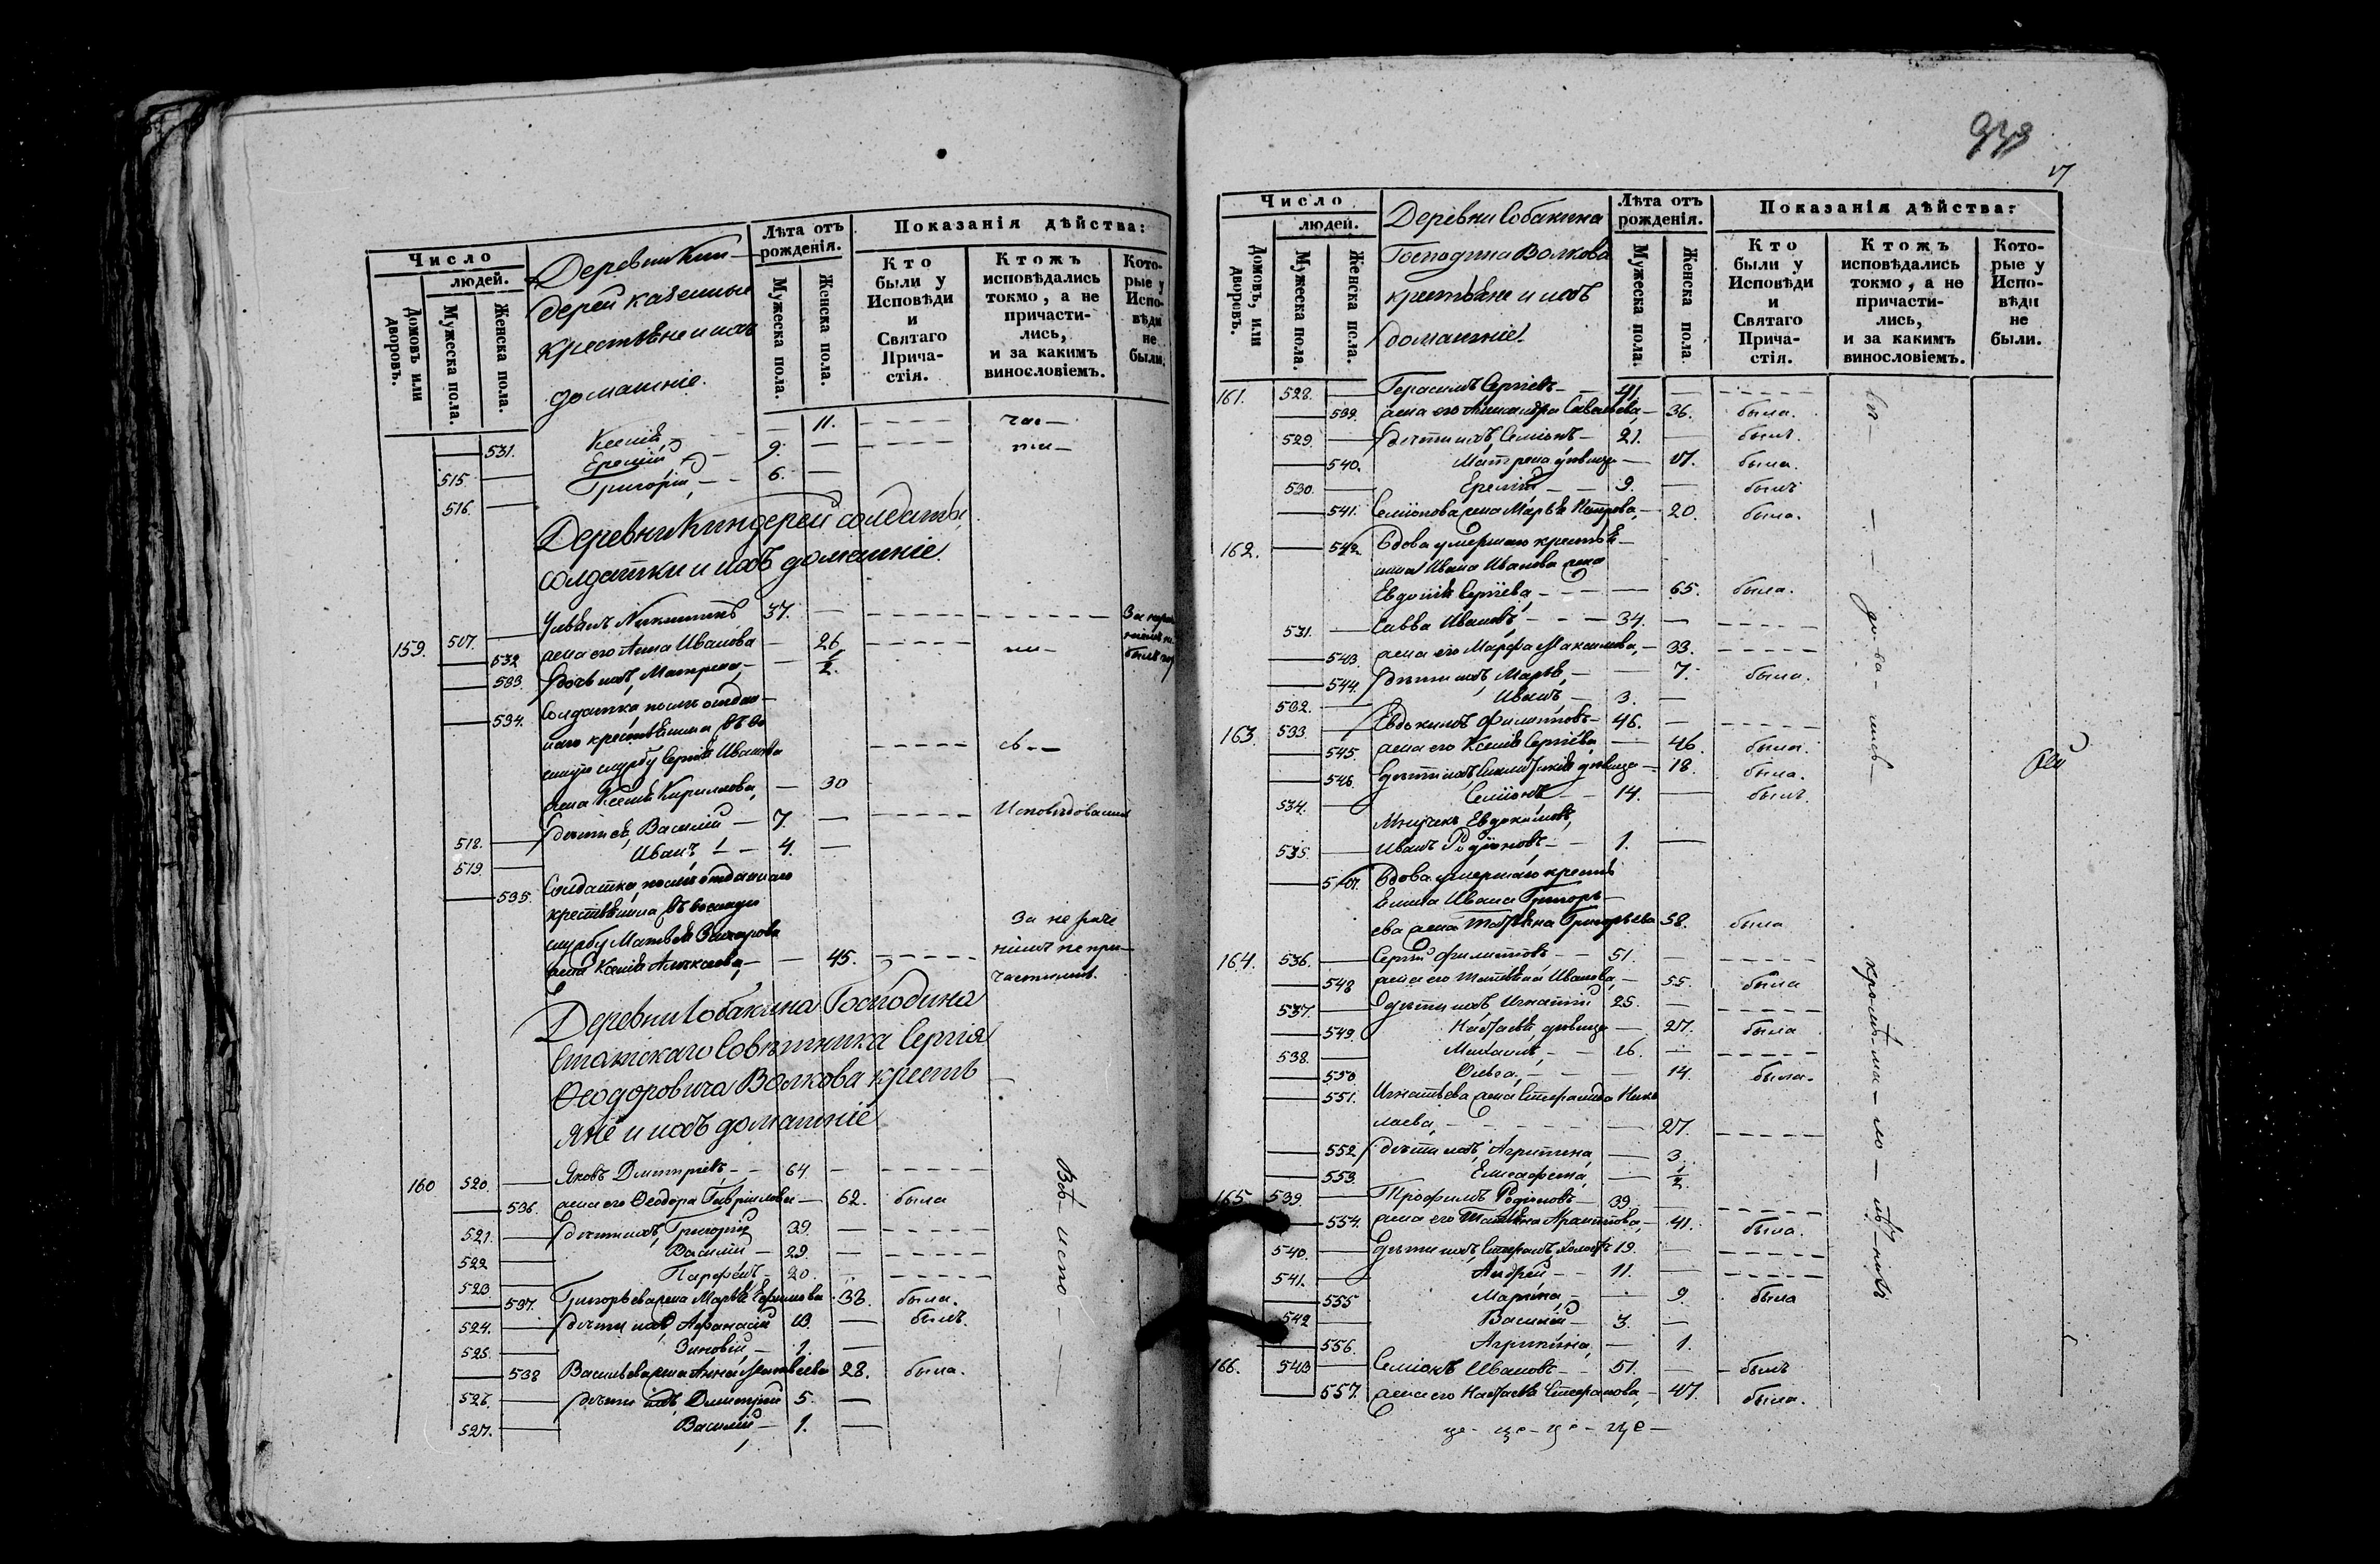 Число
людей.
Домовъ или дворовъ.
Мужеска пола.
Женска пола.
Деревни Кин-
дерей казенные
крестьяне и ихъ
домашніе.
Лѣта отъ рожденія.
Мужеска пола.
Женска пола.
Показанія дѣйства:
Кто были у Исповѣди и Святаго Прича-стія.
Ктожъ исповѣдались токмо, а не причасти-лись, и за какимъ винословіемъ.
Кото-рые у Испо-вѣди не были.
531. Ксенія 11.
515. Еремій 9.
516. Григорій, 6.
Деревни Киндерей солдаты,
солдатки и ихъ домашніе.
159. 517. Иванъ Никитинъ 37.
532 жена его Анна Иванова 26,
533. дочь ихъ, Матрена, ½.
534. Солдатка,
службу Сергія Иванова
жена Ксенія Кириллова, 30
518. дѣти ея, Василій 7. Исповѣдовались
519. Иванъ 4.
535. Солдатка, отданнаго
крестьянина въ военную
службу Матвѣя Захарова
жена Ксенія Алексѣева, 45.
За не раче
ніемъ не при-
частились.
Деревни Собакина Господина
Статскаго Совѣтника Сергія
Ѳеодоровича Волкова кресть
яне и ихъ домашніе
160 520. Яковъ Дмитріевъ 64.
536. жена его Ѳеодора Гаврилова 62. была
521. дѣти ихъ, Григорій 39.
522 Василій 29.
523 Парфенъ 20.
537. Григорьева жена Марья Ефимова 38. была.
524. дѣти ихъ Афанасій 13. былъ.
525. Зиновій 1.
538 Васильева жена Анна Матвѣева 28. была.
526. дѣти ихъ Дмитрій 5.
527. Василій 1.
Всѣ испо
17
Число
людей.
Домовъ, или дворовъ.
Мужеска пола.
Женска пола.
Деревни Собакина
Господина Волкова
крестьяне и ихъ
домашніе.
Лѣта отъ рожденія.
Мужеска пола.
Женска пола.
Показанія дѣйства:
Кто были у Исповѣди и Святаго Прича-стія.
Ктожъ исповѣдались токмо, а не причасти-лись, и за какимъ винословіемъ.
Кото-рые у Испо-вѣди не были.
161. 528. Герасимъ Сергѣевъ 41
539. жена его Александра Савельева, 36. была.
529. дѣти ихъ, Семіонъ 21. былъ.
540. Матрена дѣвица 17. была.
530. Еремій 9. былъ
541. Семіонова жена Марья Петрова, 20. была.
162. 542. Вдова умершаго крестья-
нина Ивана Иванова жена
Евдокія Сергіева, 65. была.
531. Савва Ивановъ, 34.
543 жена его Марфа Максимова, 33.
544. дѣти ихъ, Марья, 7. была.
532. Иванъ, 3.
163. 533. Евдокимъ Филиповъ 46.
545. жена его Ксенія Сергіева 46. была.
546. дѣвица 18. была.
534. Семіонъ 14. былъ.
Евдокимовъ,
535. Иванъ Родіоновъ 1.
547. Вдова умершаго кресть
янина Ивана Григорь-
ева жена Татьяна Григорьева 58. была
164. 536. Сергій Филиповъ 51.
548 жена его Татьяна Иванова, 55. была
537. дѣти ихъ, Игнатій 25.
549. Настасья, дѣвица 27. была
538. Михаилъ, 16.
550 Ольга, 14. была.
551. Игнатьева жена Степанида Нико
лаева, 27.
552. дѣти ихъ, Агрипина, 3.
553. Елисафета, ½.
165. 539. Трофимъ Родіоновъ 39.
554. жена его Татьяна Архипова, 41. была.
540. дѣти ихъ, Стефанъ холостъ 19.
541. Андрей 11.
555 Марина, 9. была
542 Василій 3.
556. Агрипина, 1.
166. 543 Семіонъ Ивановъ 51. былъ
557. жена его Настасья Стефанова, 47. была.
вѣ - до-ва-лись- кромѣ ма-ло-лѣт-нихъ